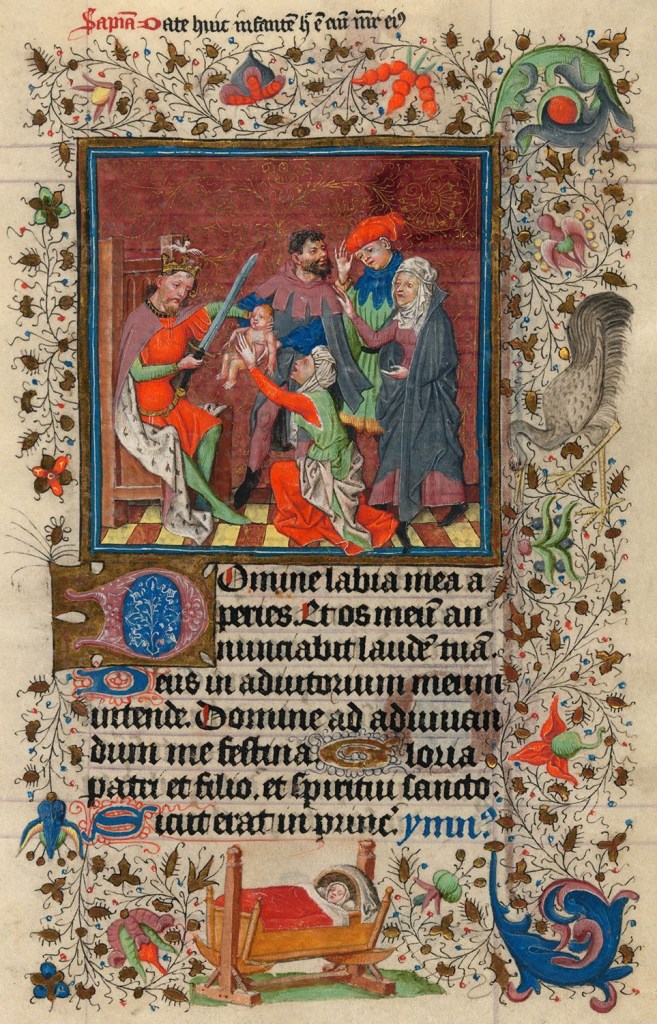 Sapia Date huic infantē h̄ ē eni m̄r eiꝰ
Domine labia mea a
peries. Et os meū an
nunciabit laudē tuā.
Deus in adiutorium meum
intende. Domine ad adiuuan
dum me festina. Gloria
patri et filio. et spiritui sancto.
Sicut erat in princ̄. ymnꝰ